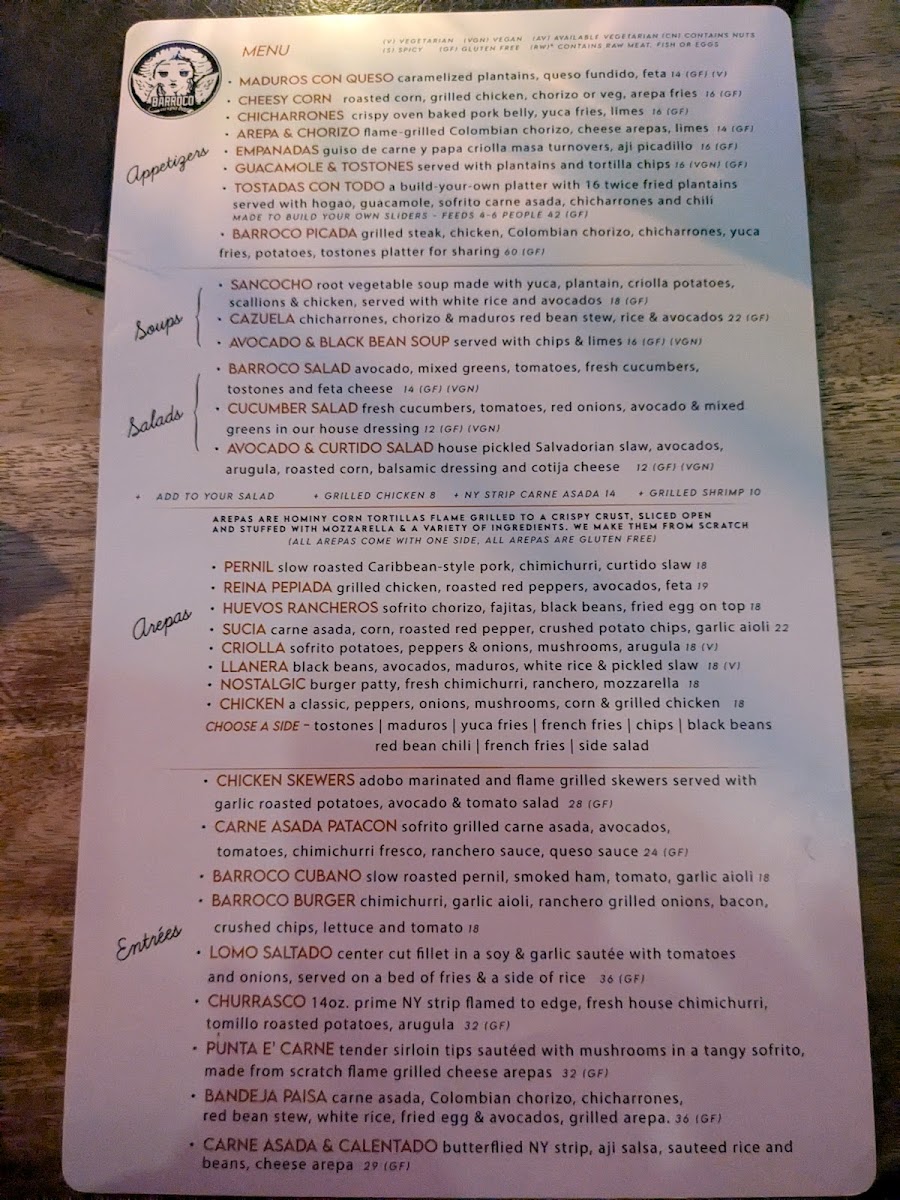 MENU
(V) VEGETARIAN (VGN) VEGAN (AV) AVAILABLE VEGETARIAN (CN) CONTAINS NUTS
(S) SPICY (GF) GLUTEN FREE (RW)* CONTAINS RAW MEAT, FISH OR EGGS
BARROCO
Appetizers
• MADUROS CON QUESO caramelized plantains, queso fundido, feta 14 (GF) (V)
• CHEESY CORN roasted corn, grilled chicken, chorizo or veg, arepa fries 16 (GF)
• CHICHARRONES crispy oven baked pork belly, yuca fries, limes 16 (GF)
• AREPA & CHORIZO flame-grilled Colombian chorizo, cheese arepas, limes 14 (GF)
• EMPANADAS guiso de carne y papa criolla masa turnovers, aji picadillo 16 (GF)
• GUACAMOLE & TOSTONES served with plantains and tortilla chips 16 (VGN) (GF)
• TOSTADAS CON TODO a build-your-own platter with 16 twice fried plantains
served with hogao, guacamole, sofrito carne asada, chicharrones and chili
MADE TO BUILD YOUR OWN SLIDERS - FEEDS 4-6 PEOPLE 42 (GF)
• BARROCO PICADA grilled steak, chicken, Colombian chorizo, chicharrones, yuca
fries, potatoes, tostones platter for sharing 60 (GF)
Soups
• SANCOCHO root vegetable soup made with yuca, plantain, criolla potatoes,
scallions & chicken, served with white rice and avocados 18 (GF)
• CAZUELA chicharrones, chorizo & maduros red bean stew, rice & avocados 22 (GF)
• AVOCADO & BLACK BEAN SOUP served with chips & limes 16 (GF) (VGN)
Salads
• BARROCO SALAD avocado, mixed greens, tomatoes, fresh cucumbers,
tostones and feta cheese 14 (GF) (VGN)
• CUCUMBER SALAD fresh cucumbers, tomatoes, red onions, avocado & mixed
greens in our house dressing 12 (GF) (VGN)
• AVOCADO & CURTIDO SALAD house pickled Salvadorian slaw, avocados,
arugula, roasted corn, balsamic dressing and cotija cheese 12 (GF) (VGN)
+ ADD TO YOUR SALAD + GRILLED CHICKEN 8 + NY STRIP CARNE ASADA 14 + GRILLED SHRIMP 10
AREPAS ARE HOMINY CORN TORTILLAS FLAME GRILLED TO A CRISPY CRUST, SLICED OPEN
AND STUFFED WITH MOZZARELLA & A VARIETY OF INGREDIENTS. WE MAKE THEM FROM SCRATCH
(ALL AREPAS COME WITH ONE SIDE, ALL AREPAS ARE GLUTEN FREE)
Arepas
• PERNIL slow roasted Caribbean-style pork, chimichurri, curtido slaw 18
• REINA PEPIADA grilled chicken, roasted red peppers, avocados, feta 19
• HUEVOS RANCHEROS sofrito chorizo, fajitas, black beans, fried egg on top 18
• SUCIA carne asada, corn, roasted red pepper, crushed potato chips, garlic aioli 22
• CRIOLLA sofrito potatoes, peppers & onions, mushrooms, arugula 18 (V)
• LLANERA black beans, avocados, maduros, white rice & pickled slaw 18 (V)
• NOSTALGIC burger patty, fresh chimichurri, ranchero, mozzarella 18
• CHICKEN a classic, peppers, onions, mushrooms, corn & grilled chicken 18
CHOOSE A SIDE - tostones | maduros | yuca fries | french fries | chips | black beans
red bean chili | french fries | side salad
Entrées
• CHICKEN SKEWERS adobo marinated and flame grilled skewers served with
garlic roasted potatoes, avocado & tomato salad 28 (GF)
• CARNE ASADA PATACON sofrito grilled carne asada, avocados,
tomatoes, chimichurri fresco, ranchero sauce, queso sauce 24 (GF)
• BARROCO CUBANO slow roasted pernil, smoked ham, tomato, garlic aioli 18
• BARROCO BURGER chimichurri, garlic aioli, ranchero grilled onions, bacon,
crushed chips, lettuce and tomato 18
• LOMO SALTADO center cut fillet in a soy & garlic sautée with tomatoes
and onions, served on a bed of fries & a side of rice 36 (GF)
• CHURRASCO 14oz. prime NY strip flamed to edge, fresh house chimichurri,
tomillo roasted potatoes, arugula 32 (GF)
• PUNTA E' CARNE tender sirloin tips sautéed with mushrooms in a tangy sofrito,
made from scratch flame grilled cheese arepas 32 (GF)
• BANDEJA PAISA carne asada, Colombian chorizo, chicharrones,
red bean stew, white rice, fried egg & avocados, grilled arepa. 36 (GF)
• CARNE ASADA & CALENTADO butterflied NY strip, aji salsa, sauteed rice and
beans, cheese arepa 29 (GF)